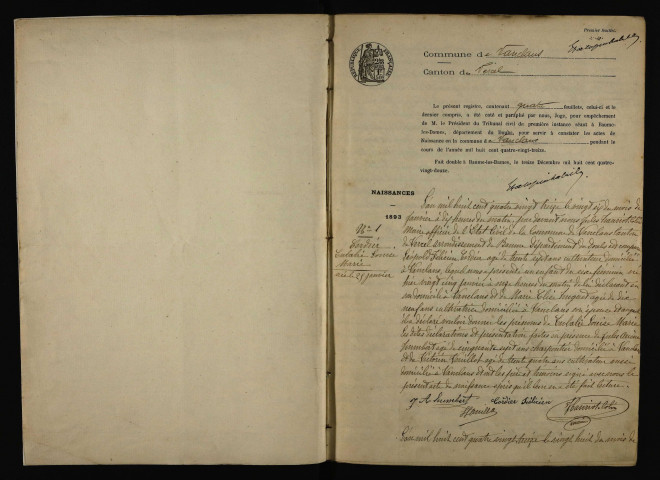 Premier feuillet.
Commune de Vanclans
Canton de Vercel
Le présent registre, contenant quatre feuillets, celui-ci et le
dernier compris, a été coté et paraphé par nous, Juge, pour empêchement
de M. le Président du Tribunal civil de première instance séant à Baume-
les-Dames, département du Doubs, pour servir à constater les actes de
Naissance en la commune de Vanclans pendant le
cours de l'année mil huit cent quatre-vingt-treize.
Fait double à Baume-les-Dames, le treize Décembre mil huit cent quatre-
vingt-douze.
NAISSANCES
1893
N° 1
Cordier
Eulalie
Marie
née le 25 janvier
L'an mil huit cent quatre vingt treize le vingt six du mois de
janvier à dix heures du matin, par devant nous Jules
Maire officier de l'Etat Civil de la Commune de Vanclans Canton
de Vercel arrondissement de Baume Département du Doubs est comparu
Cordier âgé de trente sept ans cultivateur domicilié
à Vanclans, lequel nous a présenté un enfant du sexe féminin né
hier vingt cinq janvier à onze heures du matin, de lui déclarant en
son domicile à Vanclans et de Marie âgée de
neuf ans cultivatrice domiciliée à Vanclans son épouse et auquel
il a déclaré vouloir donner les prénoms de Eulalie Marie
les dites déclarations et présentation faites en présence de
âgé de cinquante sept ans charpentier domicilié à Vanclans
et de âgé de trente quatre ans cultivateur aussi
domicilié à Vanclans et ont les père et témoins signé avec nous le
présent acte de naissance après qu'il leur en a été fait lecture.
Cordier
L'an mil huit cent quatre vingt treize le vingt huit du mois de